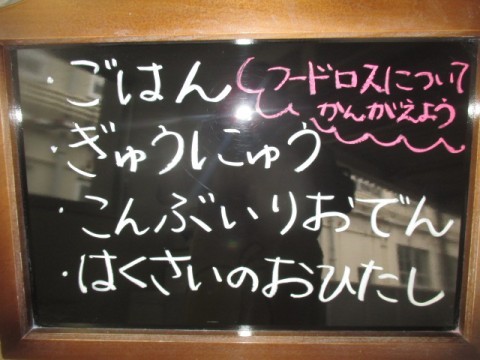 ・ごはん
フードロスについて
かんがえよう
・ぎゅうにゅう
・こんぶいりおでん
・はくさいのおひたし